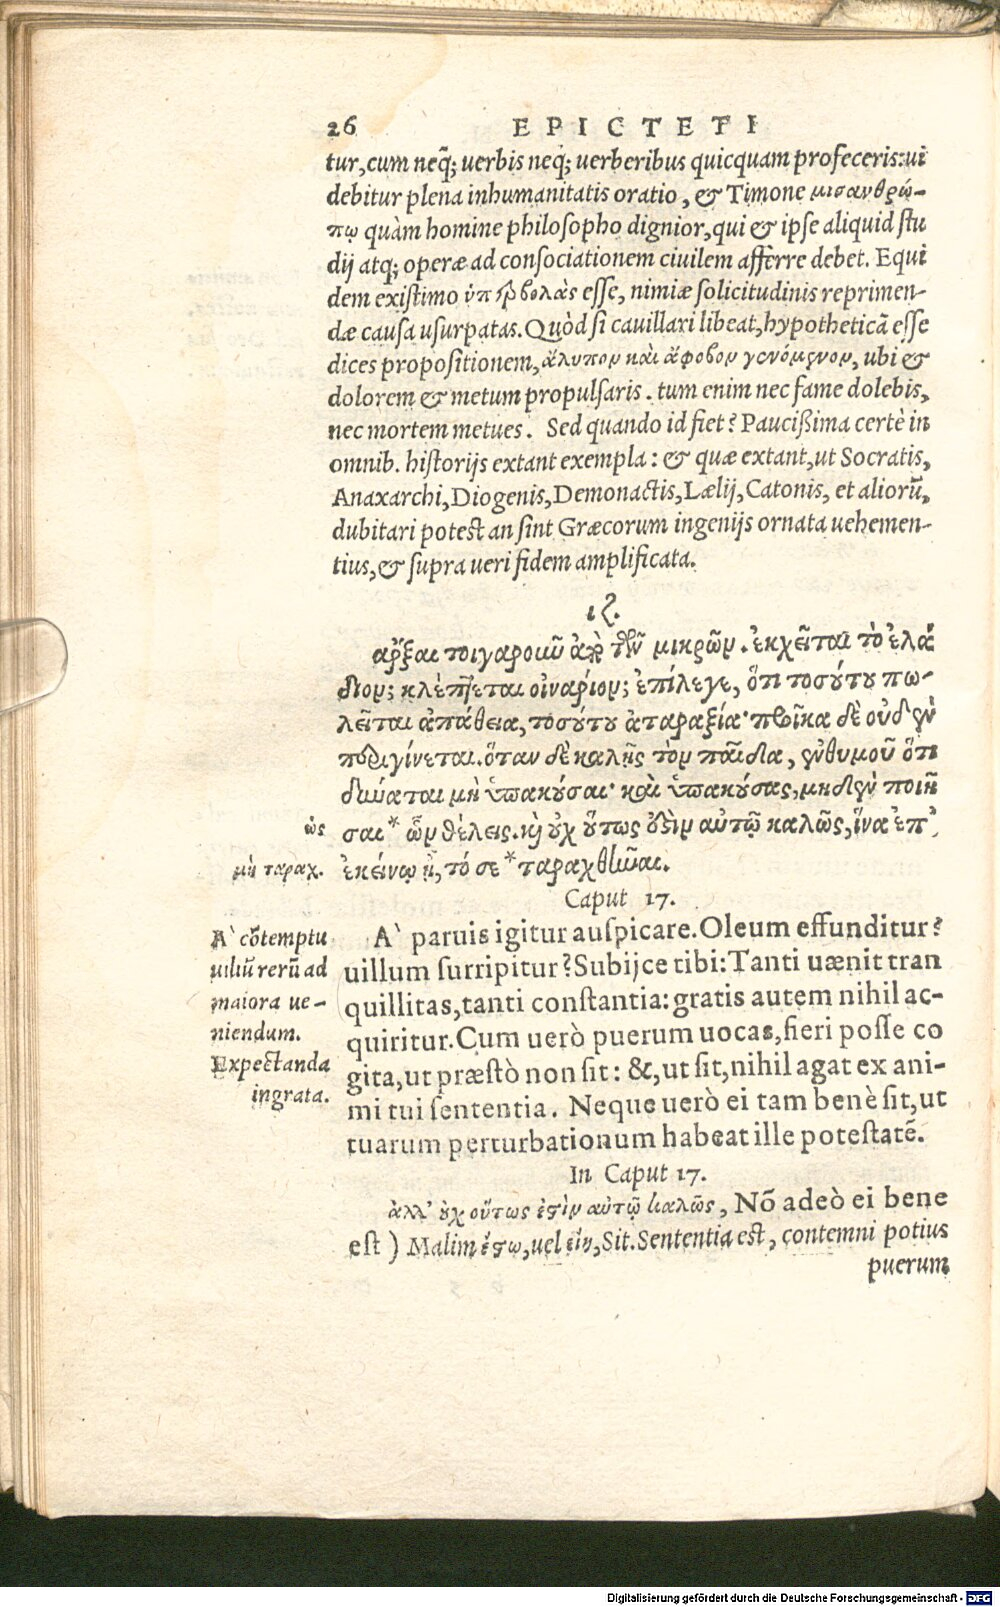 26 EPICTETI
tur, cum neq; uerbis neq; uerberibus quicquam profeceris: ui
debitur plena inhumanitatis oratio, & Timone μισανθρώ-
πῳ quàm homine philosopho dignior, qui & ipse aliquid stu
dij atq; operæ ad consociationem ciuilem afferre debet. Equi
dem existimo ὑπερβολὰς esse, nimiæ solicitudinis reprimen-
dæ causa usurpatas. Quòd si cauillari libeat, hypotheticã esse
dices propositionem, ἄλυπον καὶ ἄφοβον γενόμενον, ubi &
dolorem & metum propulsaris. tum enim nec fame dolebis,
nec mortem metues. Sed quando id fiet? Paucißima certè in
omnib. historijs extant exempla: & quæ extant, ut Socratis,
Anaxarchi, Diogenis, Demonactis, Lælij, Catonis, et aliorũ,
dubitari potest an sint Græcorum ingenijs ornata uehemen-
tius, & supra ueri fidem amplificata.
ιζ.
ἄρξαι τοιγαροῦν ἀπὸ τῶν μικρῶν. ἐκχεῖται τὸ ἐλά
διον; κλέπτεται οἰνάριον; ἐπίλεγε, ὅτι τοσούτου πω-
λεῖται ἀπάθεια, τοσούτου ἀταραξία· προῖκα δὲ οὐδὲν
περιγίνεται. ὅταν δὲ καλῇς τὸν παῖδα, ἐνθυμοῦ ὅτι
δύναται μὴ ὑπακούσαι· καὶ ὑπακούσας, μηδὲν ποιῆ
ὡς σαι * ὧν θέλεις. καὶ οὐχ οὕτως ἐστὶν αὐτῷ καλῶς, ἵνα ἐπ'
μὴ ταραχ. ἐκείνῳ ᾖ, τό σε * ταραχθῆναι.
Caput 17.
A` cõtemptu
uiliũ rerũ ad
maiora ue-
niendum.
Expectanda
ingrata.
A` paruis igitur auspicare. Oleum effunditur?
uillum surripitur? Subijce tibi: Tanti uænit tran
quillitas, tanti constantia: gratis autem nihil ac-
quiritur. Cum uerò puerum uocas, fieri posse co
gita, ut præstò non sit: &, ut sit, nihil agat ex ani-
mi tui sententia. Neque uerò ei tam benè sit, ut
tuarum perturbationum habeat ille potestatẽ.
In Caput 17.
ἀλλ' οὐχ οὕτως ἐστὶν αὐτῷ καλῶς, Nõ adeò ei bene
est) Malim ἔστω, uel εἴη, Sit. Sententia est, contemni potius
puerum
Digitalisierung gefördert durch die Deutsche Forschungsgemeinschaft - DFG